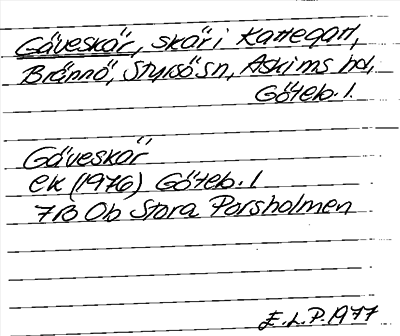 Gäveskär, skär i Kattegatt,
Brännö, Styrsö sn, Askims hd,
Göteb. l.
Gäveskär
ek (1976) Göteb. l
7B Ob Stora Porsholmen
E.L.P. 1977